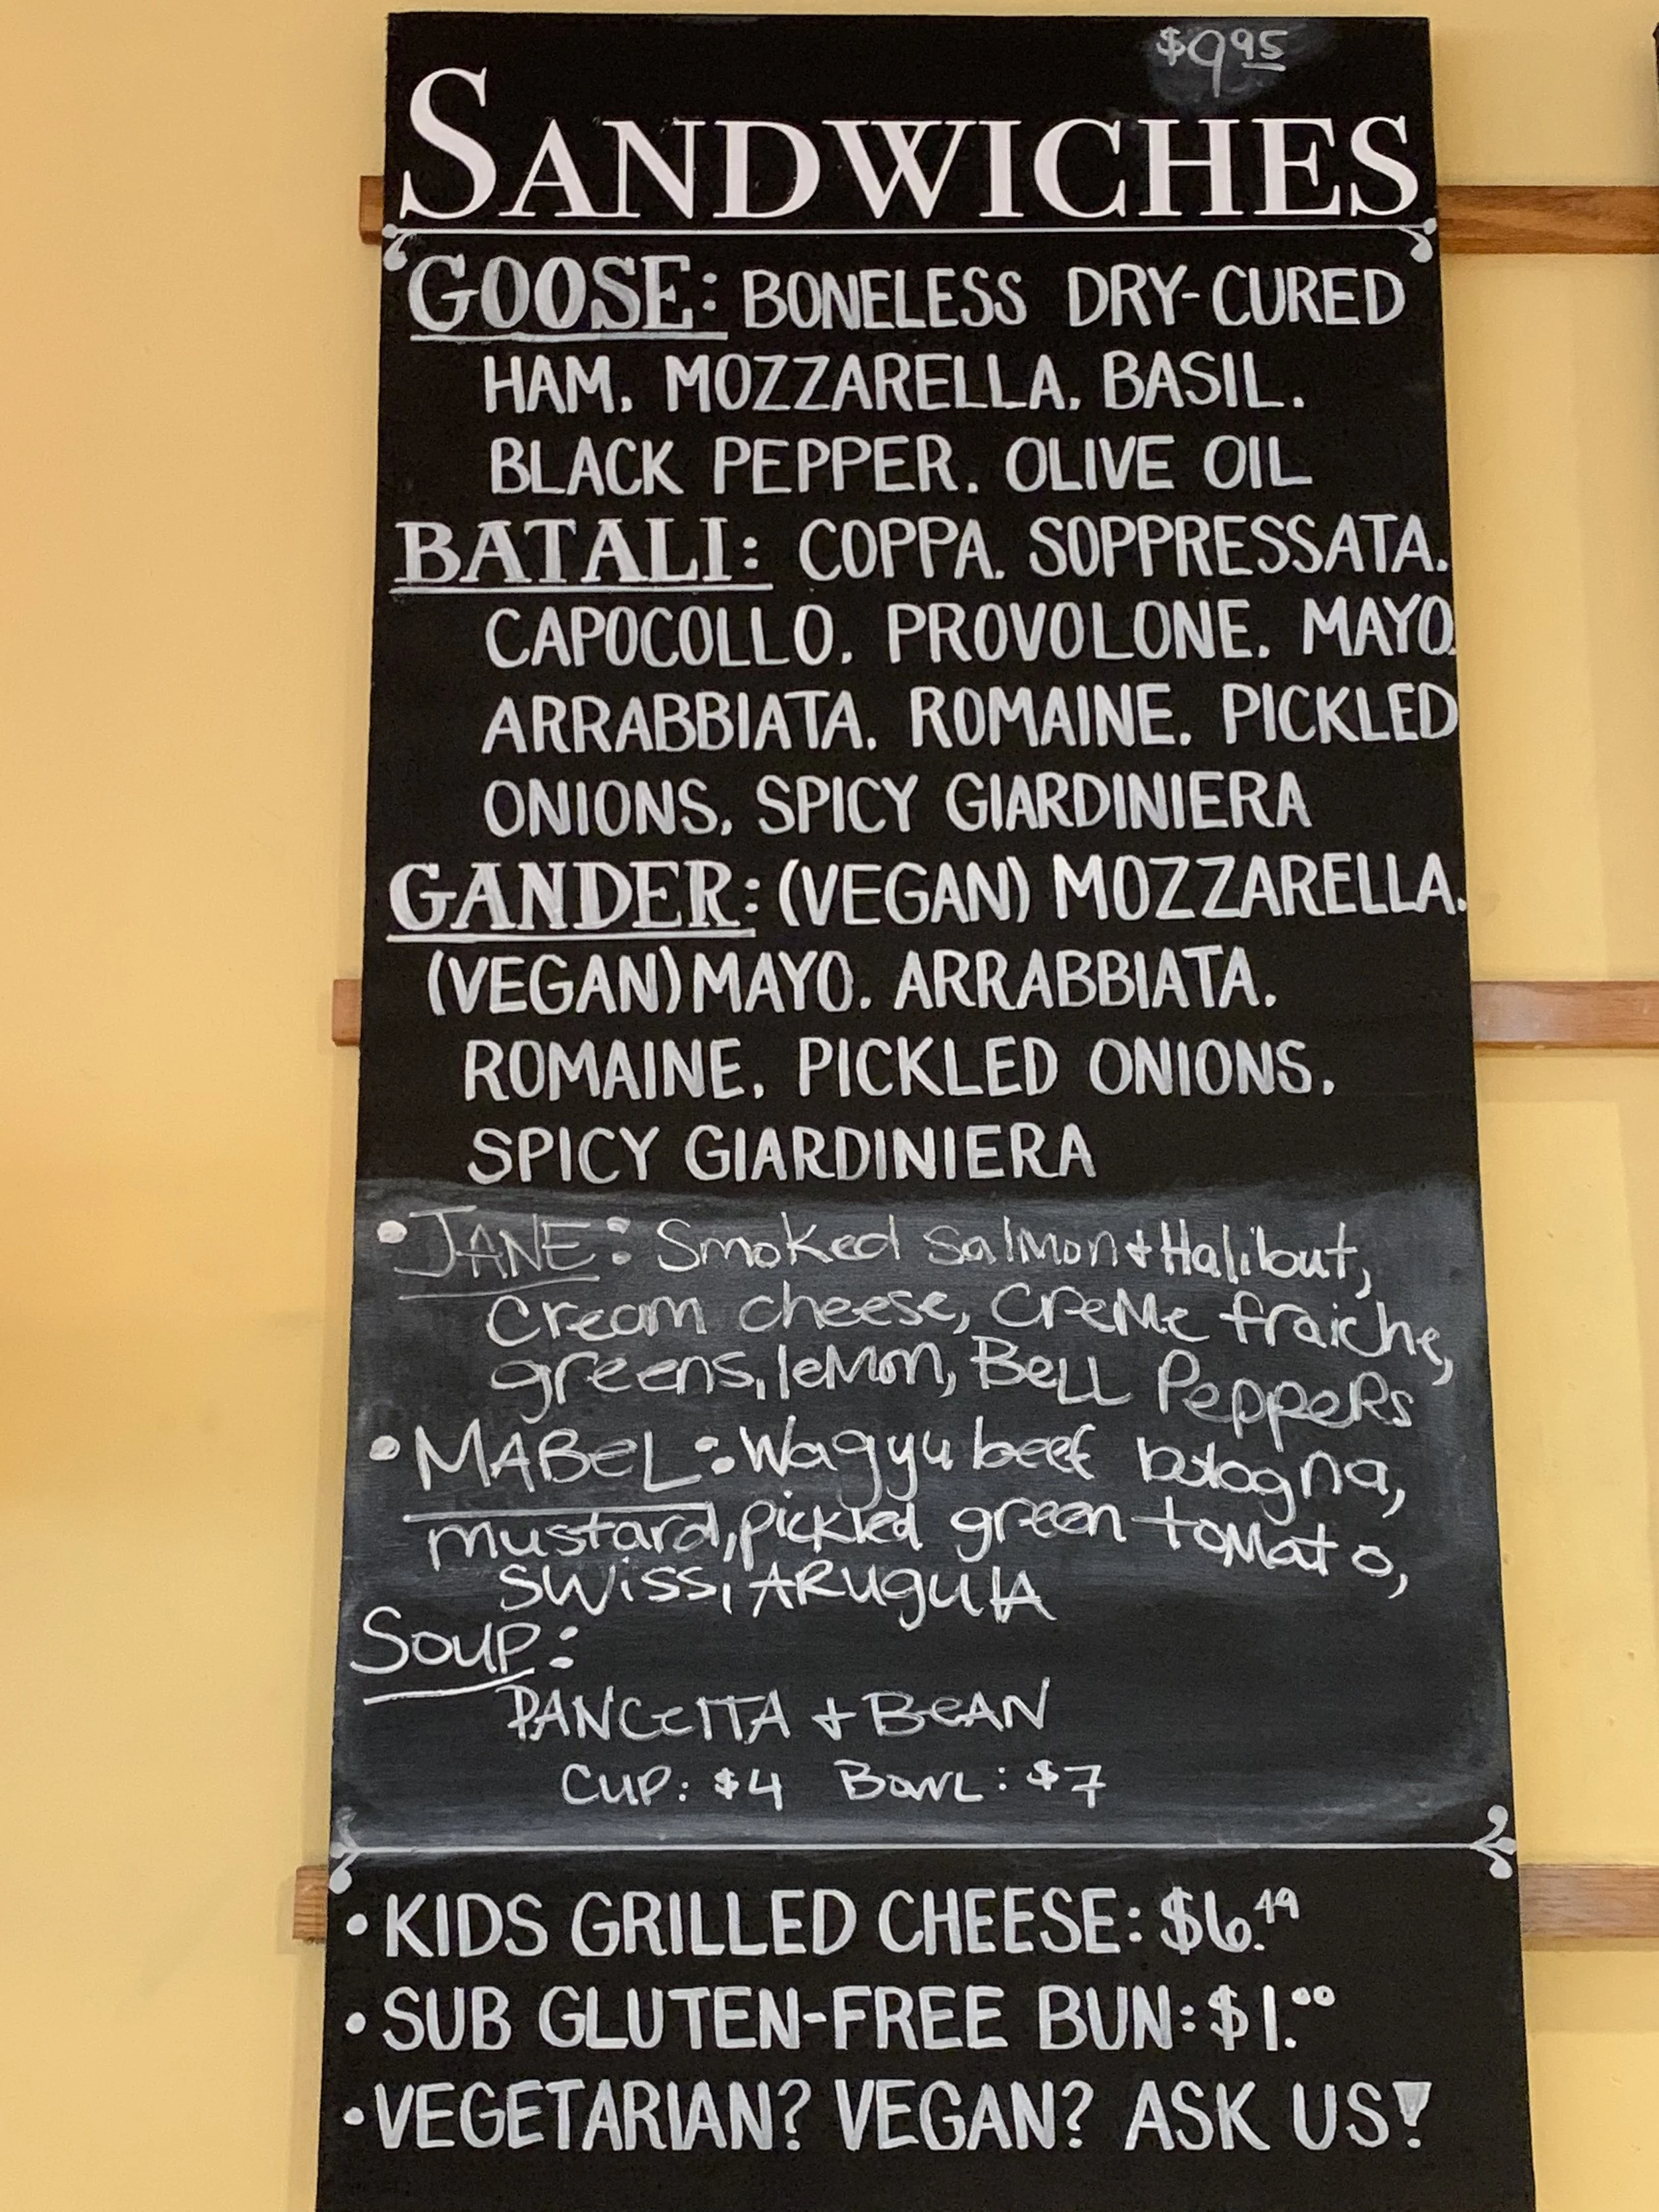 $9.95
SANDWICHES
GOOSE: BONELESS DRY-CURED
HAM. MOZZARELLA. BASIL.
BLACK PEPPER. OLIVE OIL
BATALI: COPPA. SOPPRESSATA.
CAPOCOLLO. PROVOLONE. MAYO.
ARRABBIATA. ROMAINE. PICKLED
ONIONS. SPICY GIARDINIERA
GANDER: (VEGAN) MOZZARELLA.
(VEGAN) MAYO. ARRABBIATA.
ROMAINE. PICKLED ONIONS.
SPICY GIARDINIERA
• JANE: Smoked Salmon + Halibut,
Cream cheese, CreMe fraiche,
greens, leMon, BeLL PeppeRs
• MABeL: Wagyu beef bologna,
mustard, pickled green toMato,
SWiSS, ARuguLA
Soup:
PANCeTTA + BeAN
CUP: $4 BowL: $7
• KIDS GRILLED CHEESE: $6.49
• SUB GLUTEN-FREE BUN: $1.00
• VEGETARIAN? VEGAN? ASK US!